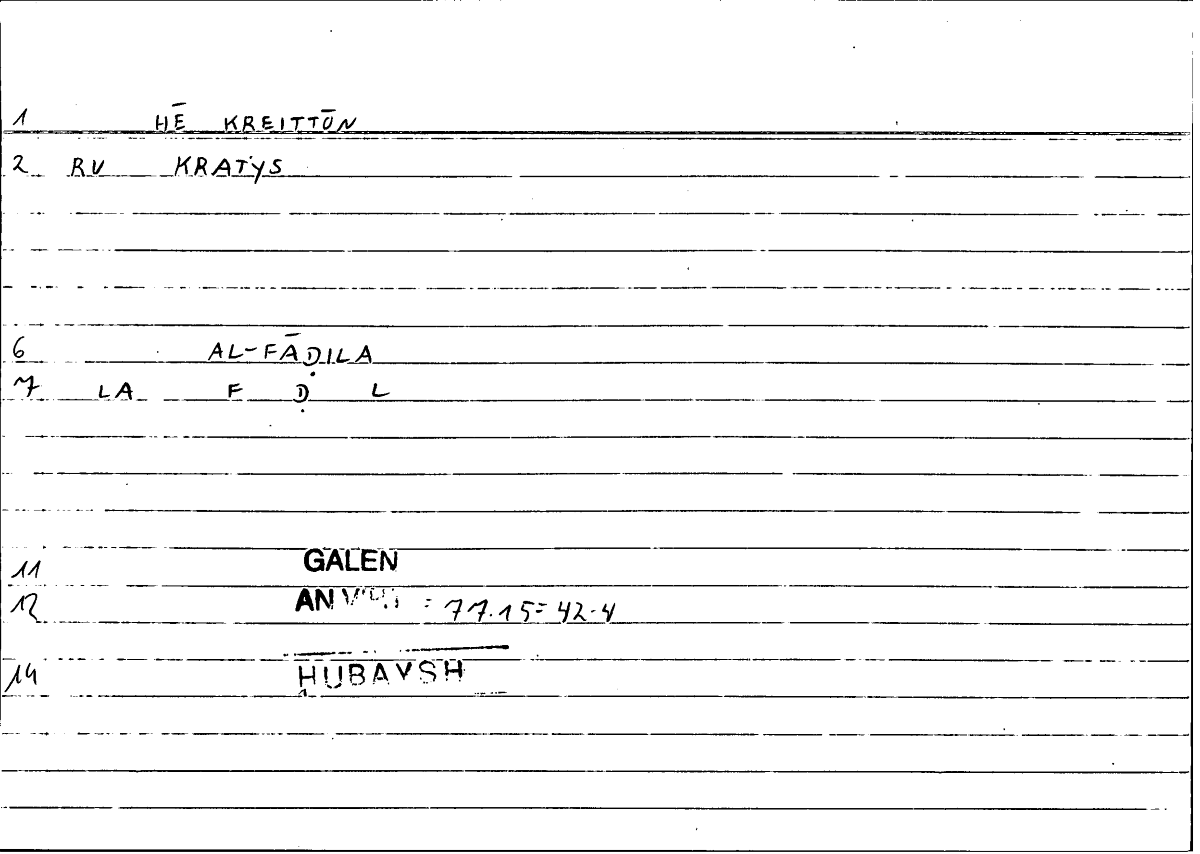 1 HĒ KREITTŌN
2 RV KRATYS
6 AL-FĀḌILA
7 LA F Ḍ L
11 GALEN
12 AN = 77.15 = 42.4
14 ḤUBAYSH